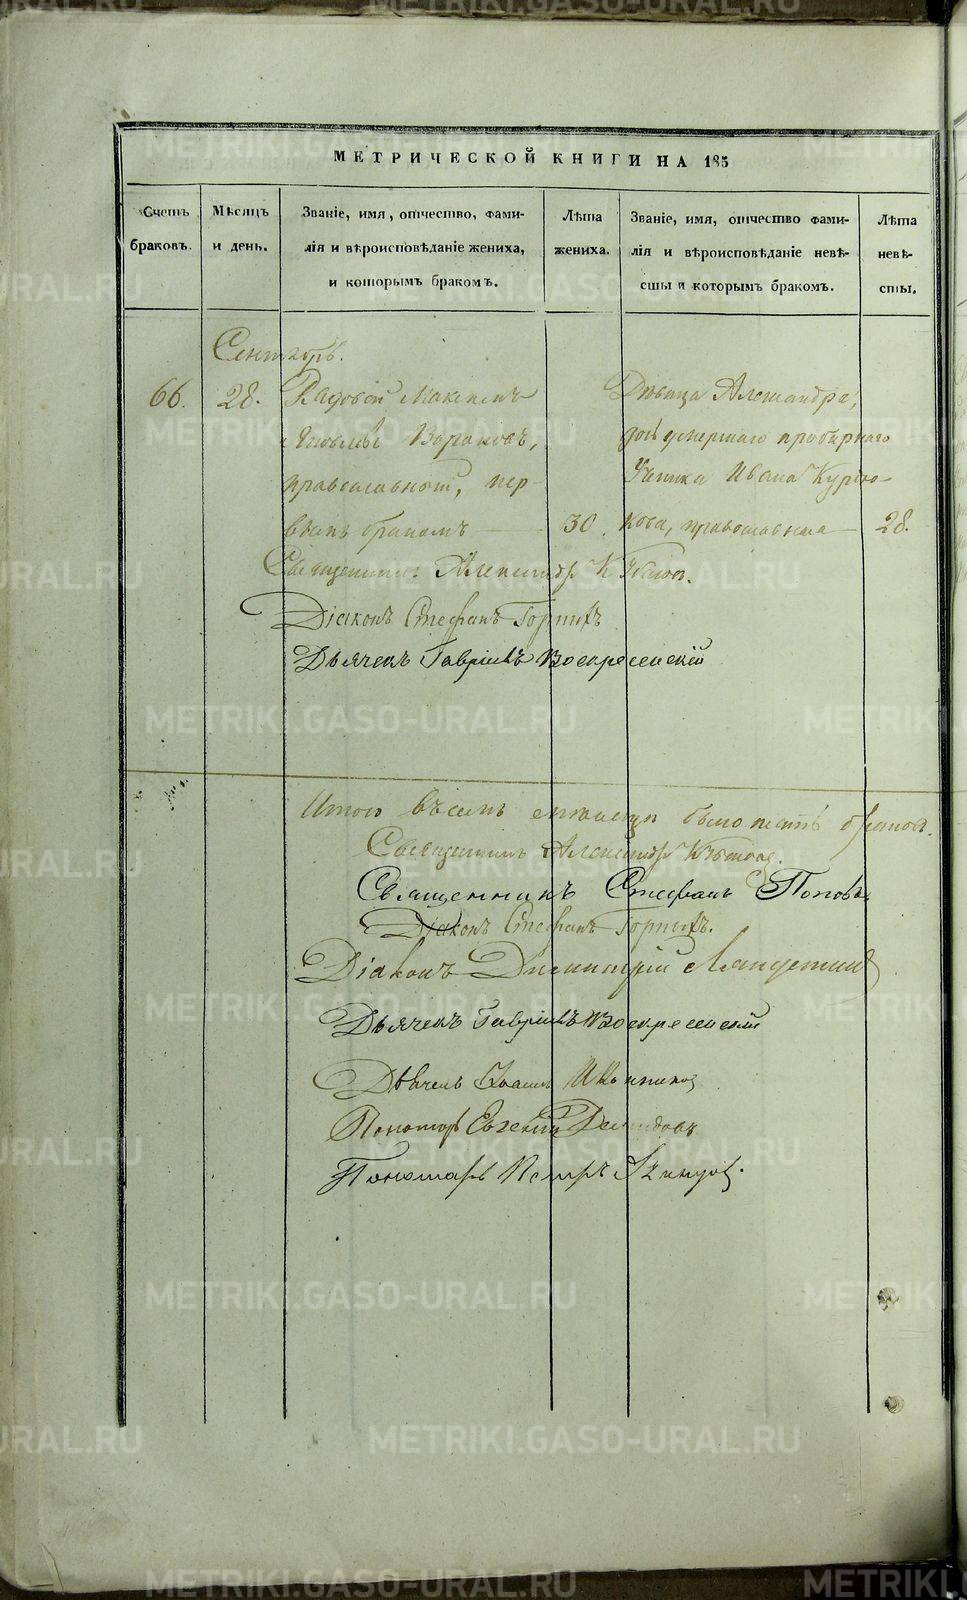 МЕТРИЧЕСКОЙ КНИГИ НА 185
Счетъ браковъ.
Мѣсяцъ и день.
Званіе, имя, отчество, фами-
лія и вѣроисповѣданіе жениха,
и которымъ бракомъ.
Лѣта жениха.
Званіе, имя, отчество фами-
лія и вѣроисповѣданіе невѣ-
сты и которымъ бракомъ.
Лѣта невѣ-
сты.
Сентябрь.
66. 28. Рядовой Максимъ
православной, пер-
вымъ бракомъ 30.
Дѣвица Александра,
умершаго пробирнаго
Ученика Ивана
кова, православная 28.
Священникъ Александръ
Діаконъ Стефанъ Горныхъ
Дьячекъ Гавріилъ Воскресенскій
Итого въ семъ мѣсяцѣ было пять браковъ.
Священникъ Александръ
Священникъ Стефанъ Поповъ
Діаконъ Стефанъ Горныхъ.
Діаконъ Димитрій
Дьячекъ Гавріилъ Воскресенскій
Дьячекъ
Пономарь Евгеній Демидовъ
Пономарь Петръ
METRIKI.GASO-URAL.RU